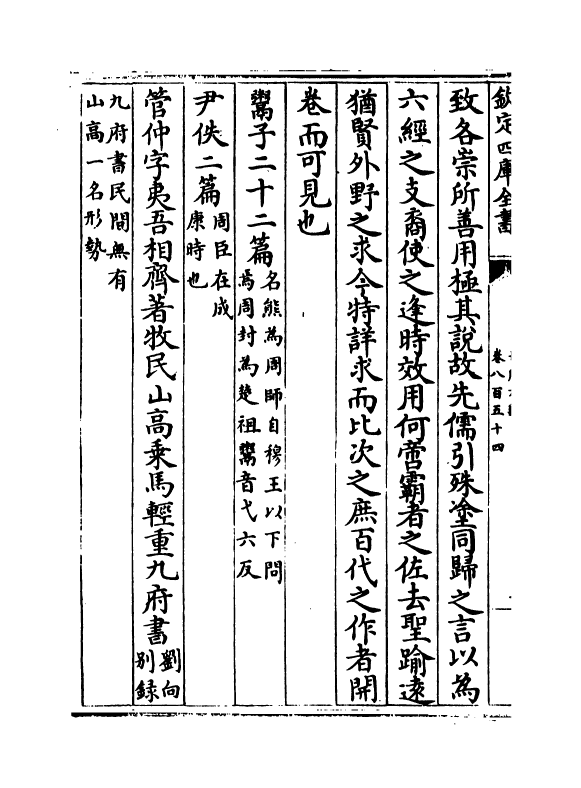 欽定四庫全書
卷八百五十四
致各崇所善用極其說故先儒引殊塗同歸之言以為
六經之支裔使之逢時效用何啻霸者之佐去聖踰遠
猶賢外野之求今特詳求而比次之庶百代之作者開
卷而可見也
鬻子二十二篇名熊為周師自穆王以下問
焉周封為楚祖鬻音弋六反
尹佚二篇周臣在成
康時也
管仲字夷吾相齊著牧民山高乘馬輕重九府書劉向
别錄
九府書民間無有
山高一名形勢